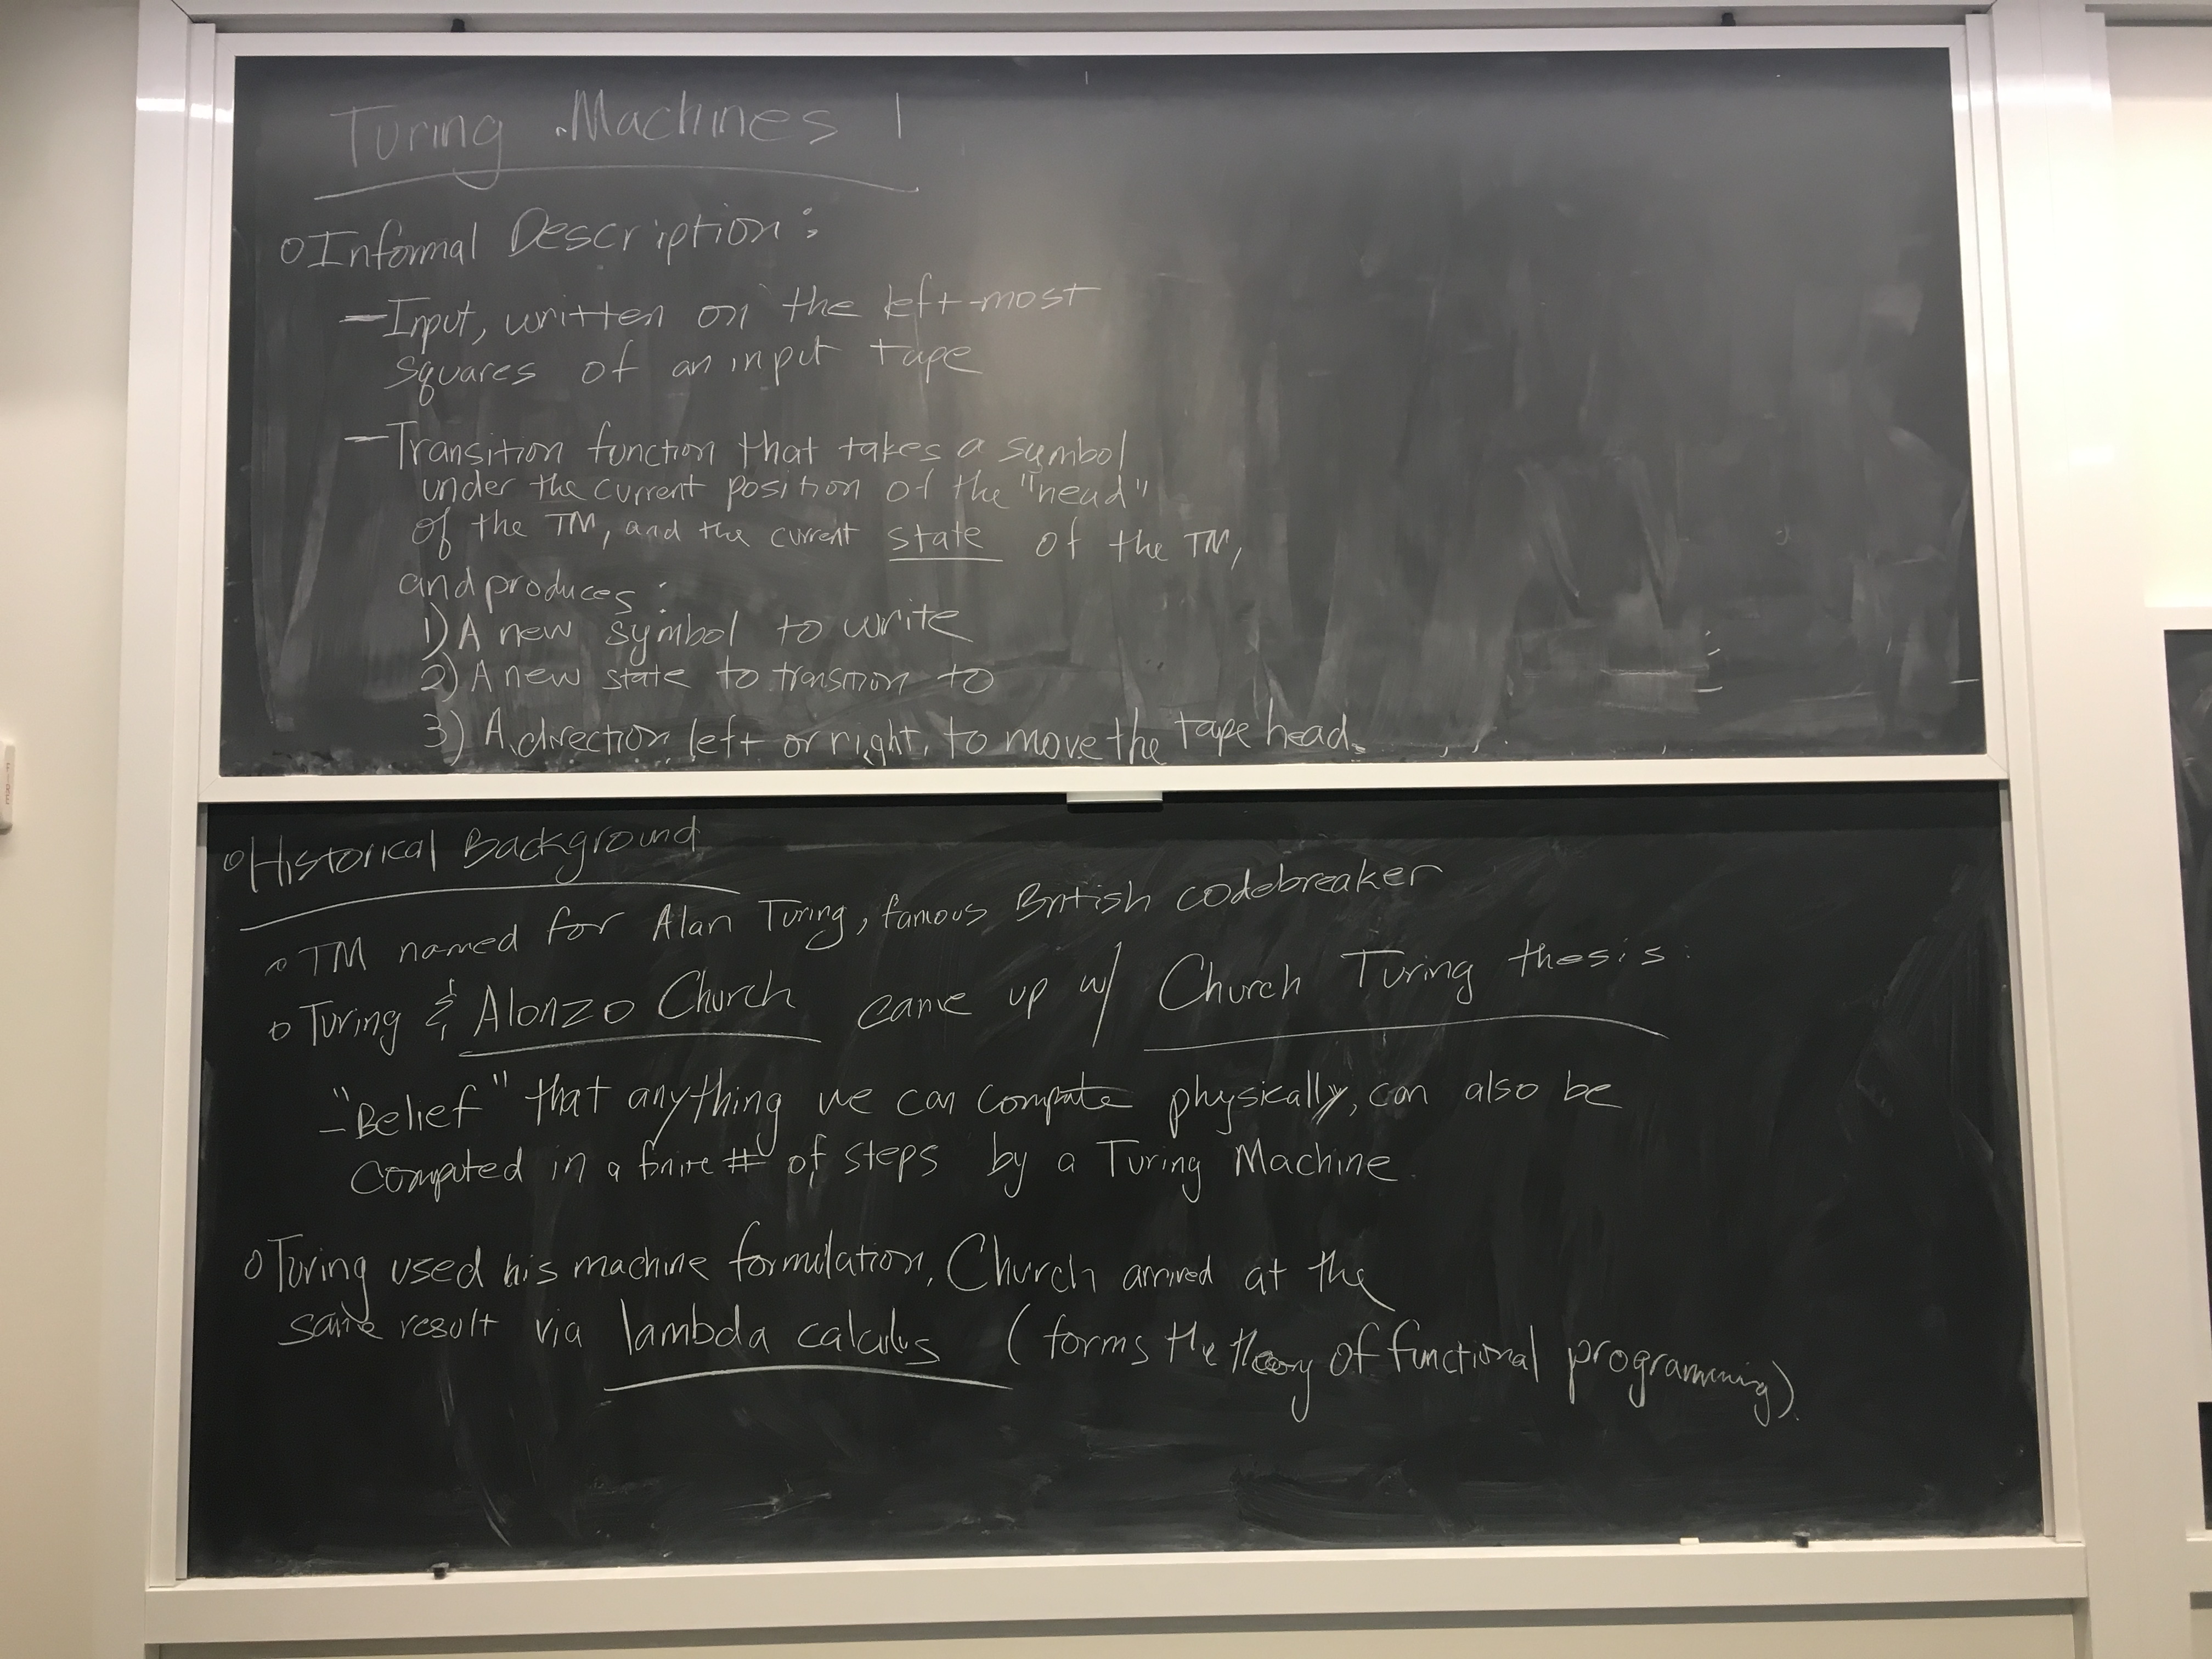 Turing Machines 1
o Informal Description:
- Input, written on the left-most
squares of an input tape
- Transition function that takes a symbol
under the current position of the "head"
of the TM, and the current state of the TM,
and produces:
1) A new symbol to write
2) A new state to transition to
3) A direction left or right, to move the tape head.
o Historical Background
o TM named for Alan Turing, famous British codebreaker
o Turing & Alonzo Church came up w/ Church Turing thesis:
- "Belief" that anything we can compute physically, can also be
computed in a finite # of steps by a Turing Machine.
o Turing used his machine formulation, Church arrived at the
same result via lambda calculus (forms the theory of functional programming).